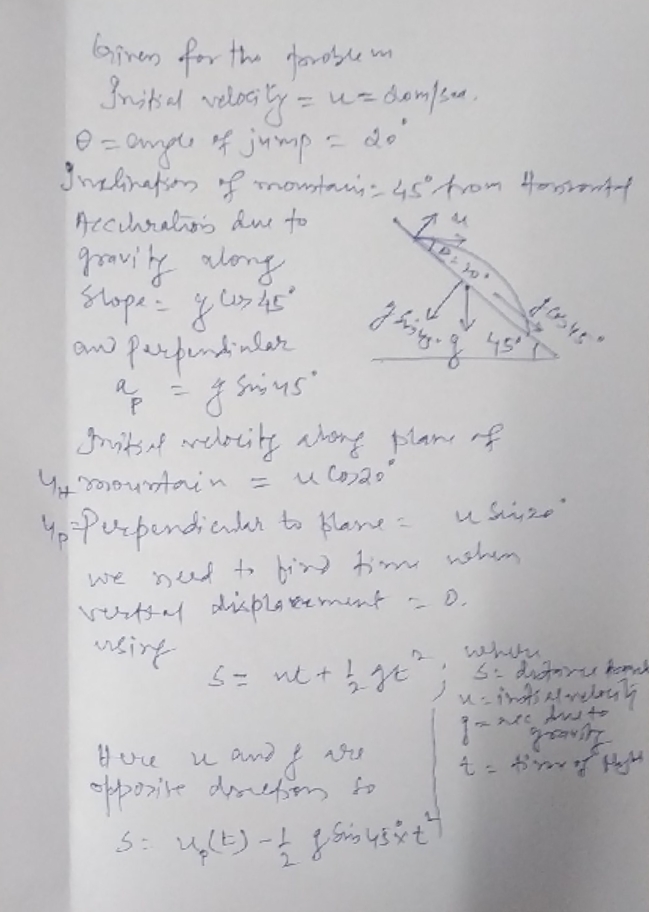 Given for the problem
Initial velocity = u = 20m/sec.
θ = angle of jump = 20°
Inclination of mountain = 45° from Horizontal
Acceleration due to
gravity along
slope = g cos 45°
and perpendicular
a_p = g sin 45°
u
θ = 20°
g sin 45°
g
45°
g cos 45°
Initial velocity along plane of
mountain = u cos 20°
u_p = Perpendicular to plane = u sin 20°
we need to find time when
vertical displacement = 0.
using
S = ut + 1/2 gt², where
S = distance
u = initial velocity
g = acc due to
gravity
t = time of flight
Here u and g are
opposite direction so
S = u_p(t) - 1/2 g sin 45° x t²